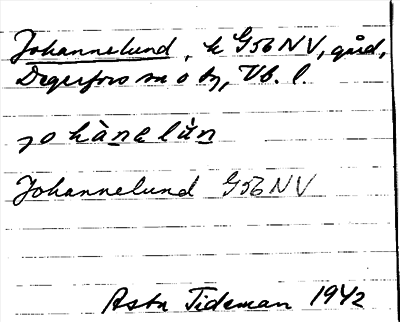 Johannelund, k G56NV, gård,
Degerfors sn o by, Vb. l.
johànelùn
Johannelund G56NV
Asta Tideman 1942